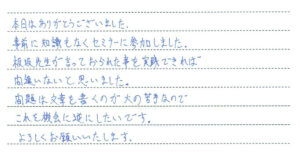 本日はありがとうございました。
事前に知識もなくセミナーに参加しました。
板坂先生が言っておられた事を実践できれば
間違いないと思いました。
問題は文章を書くのが大の苦手なので
これを機会に逆にしたいです。
よろしくお願いいたします。